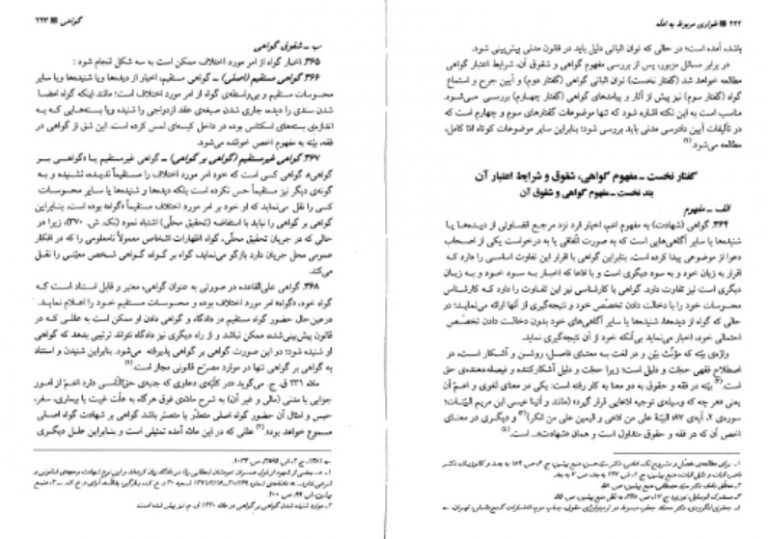 ۲۲۲ ■ طواری مربوط به ادله
باشد، آمده است؛ در حالی که توان اثباتی دلیل باید در قانون مدنی پیش‌بینی شود.
در برابر مسائل مزبور، پس از بررسی مفهوم گواهی و شقوق آن، شرایط اعتبار گواهی
مطالعه خواهد شد (گفتار نخست) توان اثباتی گواهی (گفتار دوم) و آیین جرح و استماع
گواه (گفتار سوم) نیز پیش از آثار و پیامدهای گواهی (گفتار چهارم) بررسی می‌شود.
مناسب است به این نکته اشاره شود که تنها موضوعات گفتارهای سوم و چهارم است که
در تألیفات آیین دادرسی مدنی باید بررسی شود؛ بنابراین سایر موضوعات کوتاه امّا کامل،
مطالعه می‌شود.(۱)
گفتار نخست ـ مفهوم گواهی، شقوق و شرایط اعتبار آن
بند نخست ـ مفهوم گواهی و شقوق آن
الف ـ مفهوم
۳۶۴. گواهی (شهادت) به مفهوم اعم، اخبار فرد نزد مرجع قضاوتی از دیده‌ها یا
شنیده‌ها یا سایر آگاهی‌هایی است که به صورت اتّفاقی یا به درخواست یکی از اصحاب
دعوا از موضوعی پیدا کرده است. بنابراین گواهی با اقرار این تفاوت اساسی را دارد که
اقرار به زیان خود و به سود دیگری است و با ادّعا که اخبار به سود خود و به زیان
دیگری است نیز تفاوت دارد. گواهی با کارشناسی نیز این تفاوت را دارد که کارشناس
محسوسات خود را با دخالت دادن تخصّص خود و نتیجه‌گیری از آنها ارائه می‌نماید؛ در
حالی که گواه از دیده‌ها، شنیده‌ها یا سایر آگاهی‌های خود بدون دخالت دادن تخصّص
احتمالی خود، اخبار می‌نماید بی‌آنکه خود از آن نتیجه‌گیری نماید.
واژه‌ی بیّنه که مؤنّث بیّن و در لغت به معنای فاصل، روشن و آشکار است، در
اصطلاح فقهی حجت و دلیل است؛ زیرا حجت و دلیل آشکارکننده و فیصله‌دهنده‌ی حق
است.(۲) بیّنه در فقه و حقوق به دو معنا به کار رفته است: یکی در معنای لغوی و اعمّ آن
یعنی «هر چه که وسیله‌ی توجیه ادّعایی قرار گیرد» (مانند و آتینا عیسی ابن مریم البیّنات؛
سوره‌ی ۲، آیه‌ی ۸۷؛ البیّنة علی من ادّعی و الیمین علی من انکر)(۳) و دیگری در معنای
اخص آن که در فقه و حقوق متداول است و همان «شهادت» است.(۴)
گواهی ■ ۲۲۳
ب ـ شقوق گواهی
۳۶۵. اخبار گواه از امر مورد اختلاف ممکن است به سه شکل انجام شود :
۳۶۶. گواهی مستقیم (اصلی) ـ گواهی مستقیم، اخبار از دیده‌ها ویا شنیده‌ها ویا سایر
محسوسات مستقیم و بی‌واسطه‌ی گواه از امر مورد اختلاف است؛ مانند اینکه گواه امضا
شدن سندی را دیده، جاری شدن صیغه‌ی عقد ازدواجی را شنیده ویا بسته‌هایی که به
اندازه‌ی بسته‌های اسکناس بوده در داخل کیسه‌ای لمس کرده است. این شق از گواهی در
فقه، بیّنه به مفهوم اخص خوانده می‌شود.
۳۶۷. گواهی غیرمستقیم (گواهی بر گواهی) ـ گواهی غیرمستقیم یا «گواهی بر
گواهی» گواهی کسی است که خود امر مورد اختلاف را مستقیماً ندیده، نشنیده و به
گونه‌ی دیگر نیز مستقیماً حس نکرده است بلکه دیده‌ها و شنیده‌ها یا سایر محسوسات
کسی را نقل می‌نماید که او خود بر امر مورد اختلاف مستقیماً «گواه» بوده است. بنابراین
گواهی بر گواهی را نباید با استفاضه (تحقیق محلّی) اشتباه نمود (نک. ش. ۳۷۰)، زیرا در
حالی که در جریان تحقیق محلّی، گواه اظهارات اشخاص معمولاً نامعلومی را که در افکار
عمومی محل جریان دارد بازگو می‌نماید، گواه بر گواه، گواهی شخص معیّنی را نقل
می‌کند.
۳۶۸. گواهی علی‌القاعده در صورتی به عنوان گواهی، معتبر و قابل استناد است که
گواه خود، «گواه» امر مورد اختلاف بوده و محسوسات مستقیم خود را اعلام نماید.
درعین‌حال حضور گواه مستقیم در دادگاه و گواهی دادن او ممکن است به عللی که در
قانون پیش‌بینی‌شده، ممکن نباشد و از راه دیگری نیز دادگاه نتواند ترتیبی بدهد که گواهی
او شنیده شود؛ دو این صورت گواهی بر گواهی پذیرفته می‌شود. بنابراین شنیدن و استناد
به گواهی بر گواهی تنها در موارد مصرّح قانونی مجاز است.
ماده ۲۳۱ ق. ج. می‌گوید «در کلّیه‌ی دعاوی که جنبه‌ی حق‌النّاسی دارد اعمّ از امور
جزایی یا مدنی (مالی و غیر آن) به شرح ماده‌ی فوق هرگاه به علّت غیبت یا بیماری، سفر،
حبس و امثال آن حضور گواه اصلی متعذّر یا متعسّر باشد گواهی بر شهادت گواه اصلی
مسموع خواهد بود».(۲) عللی که در این ماده آمده تمثیلی است و بنابراین علل دیگری